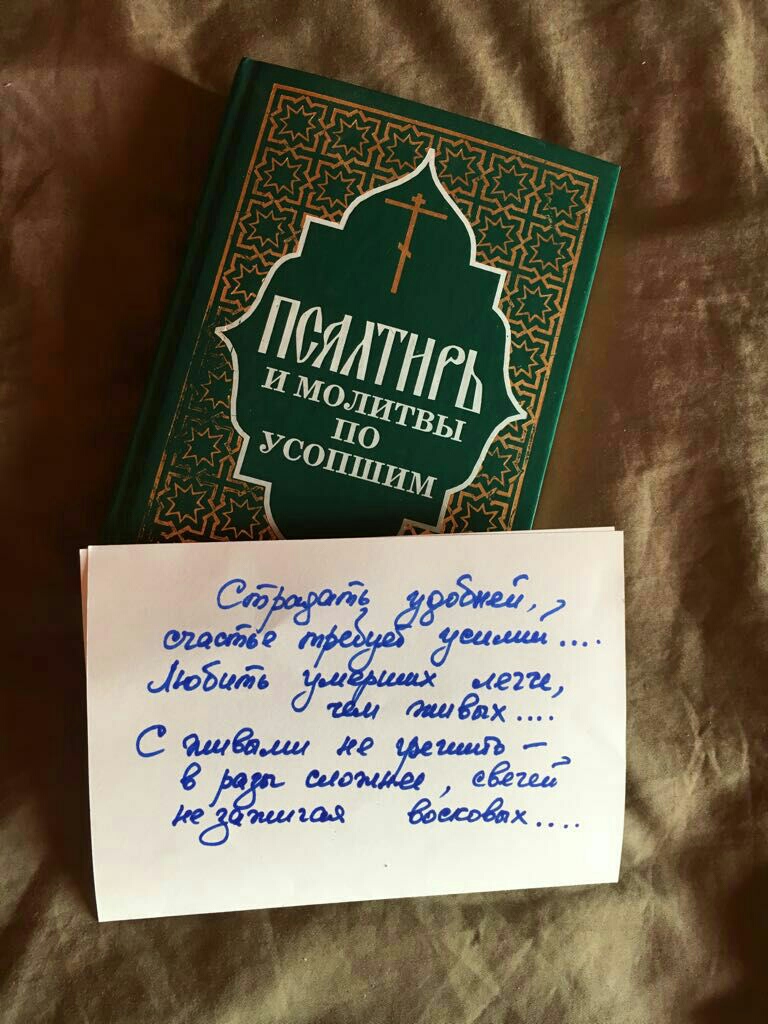 ПСАЛТИРЬ
И МОЛИТВЫ
ПО
УСОПШИМ
Страдать удобней,
счастье требует усилий....
Любить умерших легче,
чем живых....
С живыми не грешить –
в разы сложнее, свечей
не зажигая восковых....